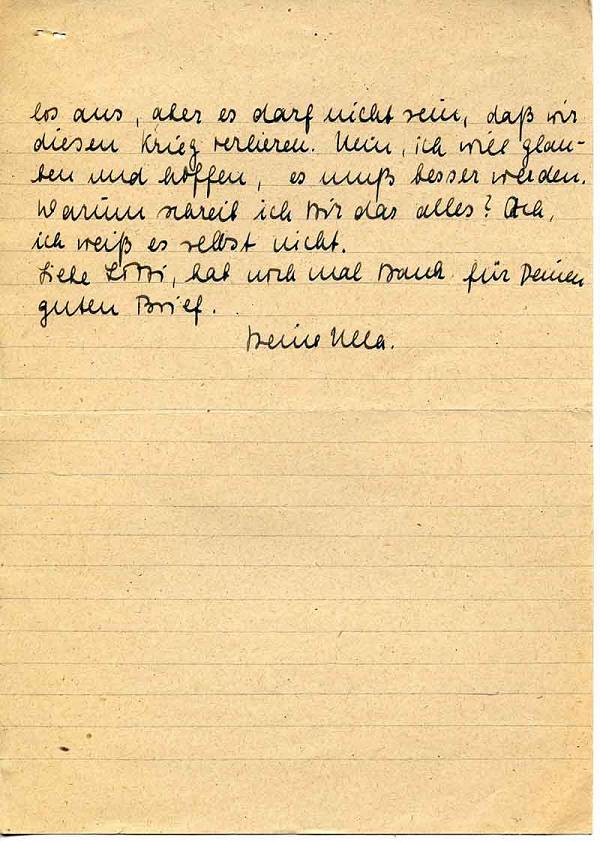 los aus, aber es darf nicht sein, daß wir
diesen Krieg verlieren. Nein, ich will glau-
ben und hoffen, es muß besser werden.
Warum schreib ich Dir das alles? Ach,
ich weiß es selbst nicht.
Liebe Lotti, hab noch mal Dank für Deinen
guten Brief.
Deine Ulla.